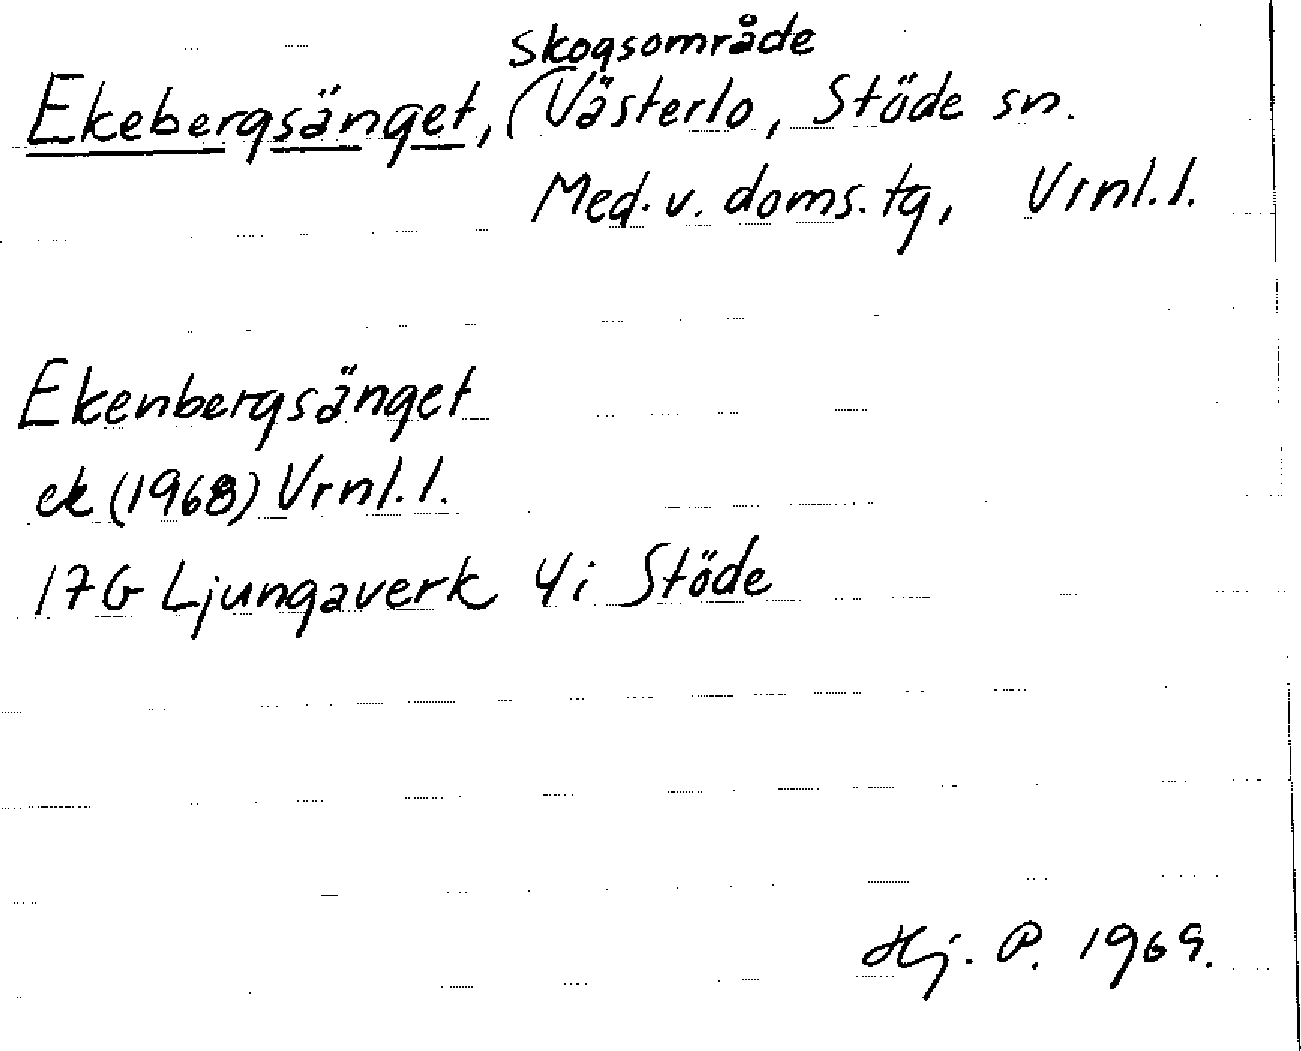 Skogsområde
Ekebergsänget, (Västerlo, Stöde sn.
Med. v. doms. tg, Vrnl. l.
Ekenbergsänget
ek (1968) Vrnl. l.
17G Ljungaverk 4i Stöde
Hj. P. 1969.